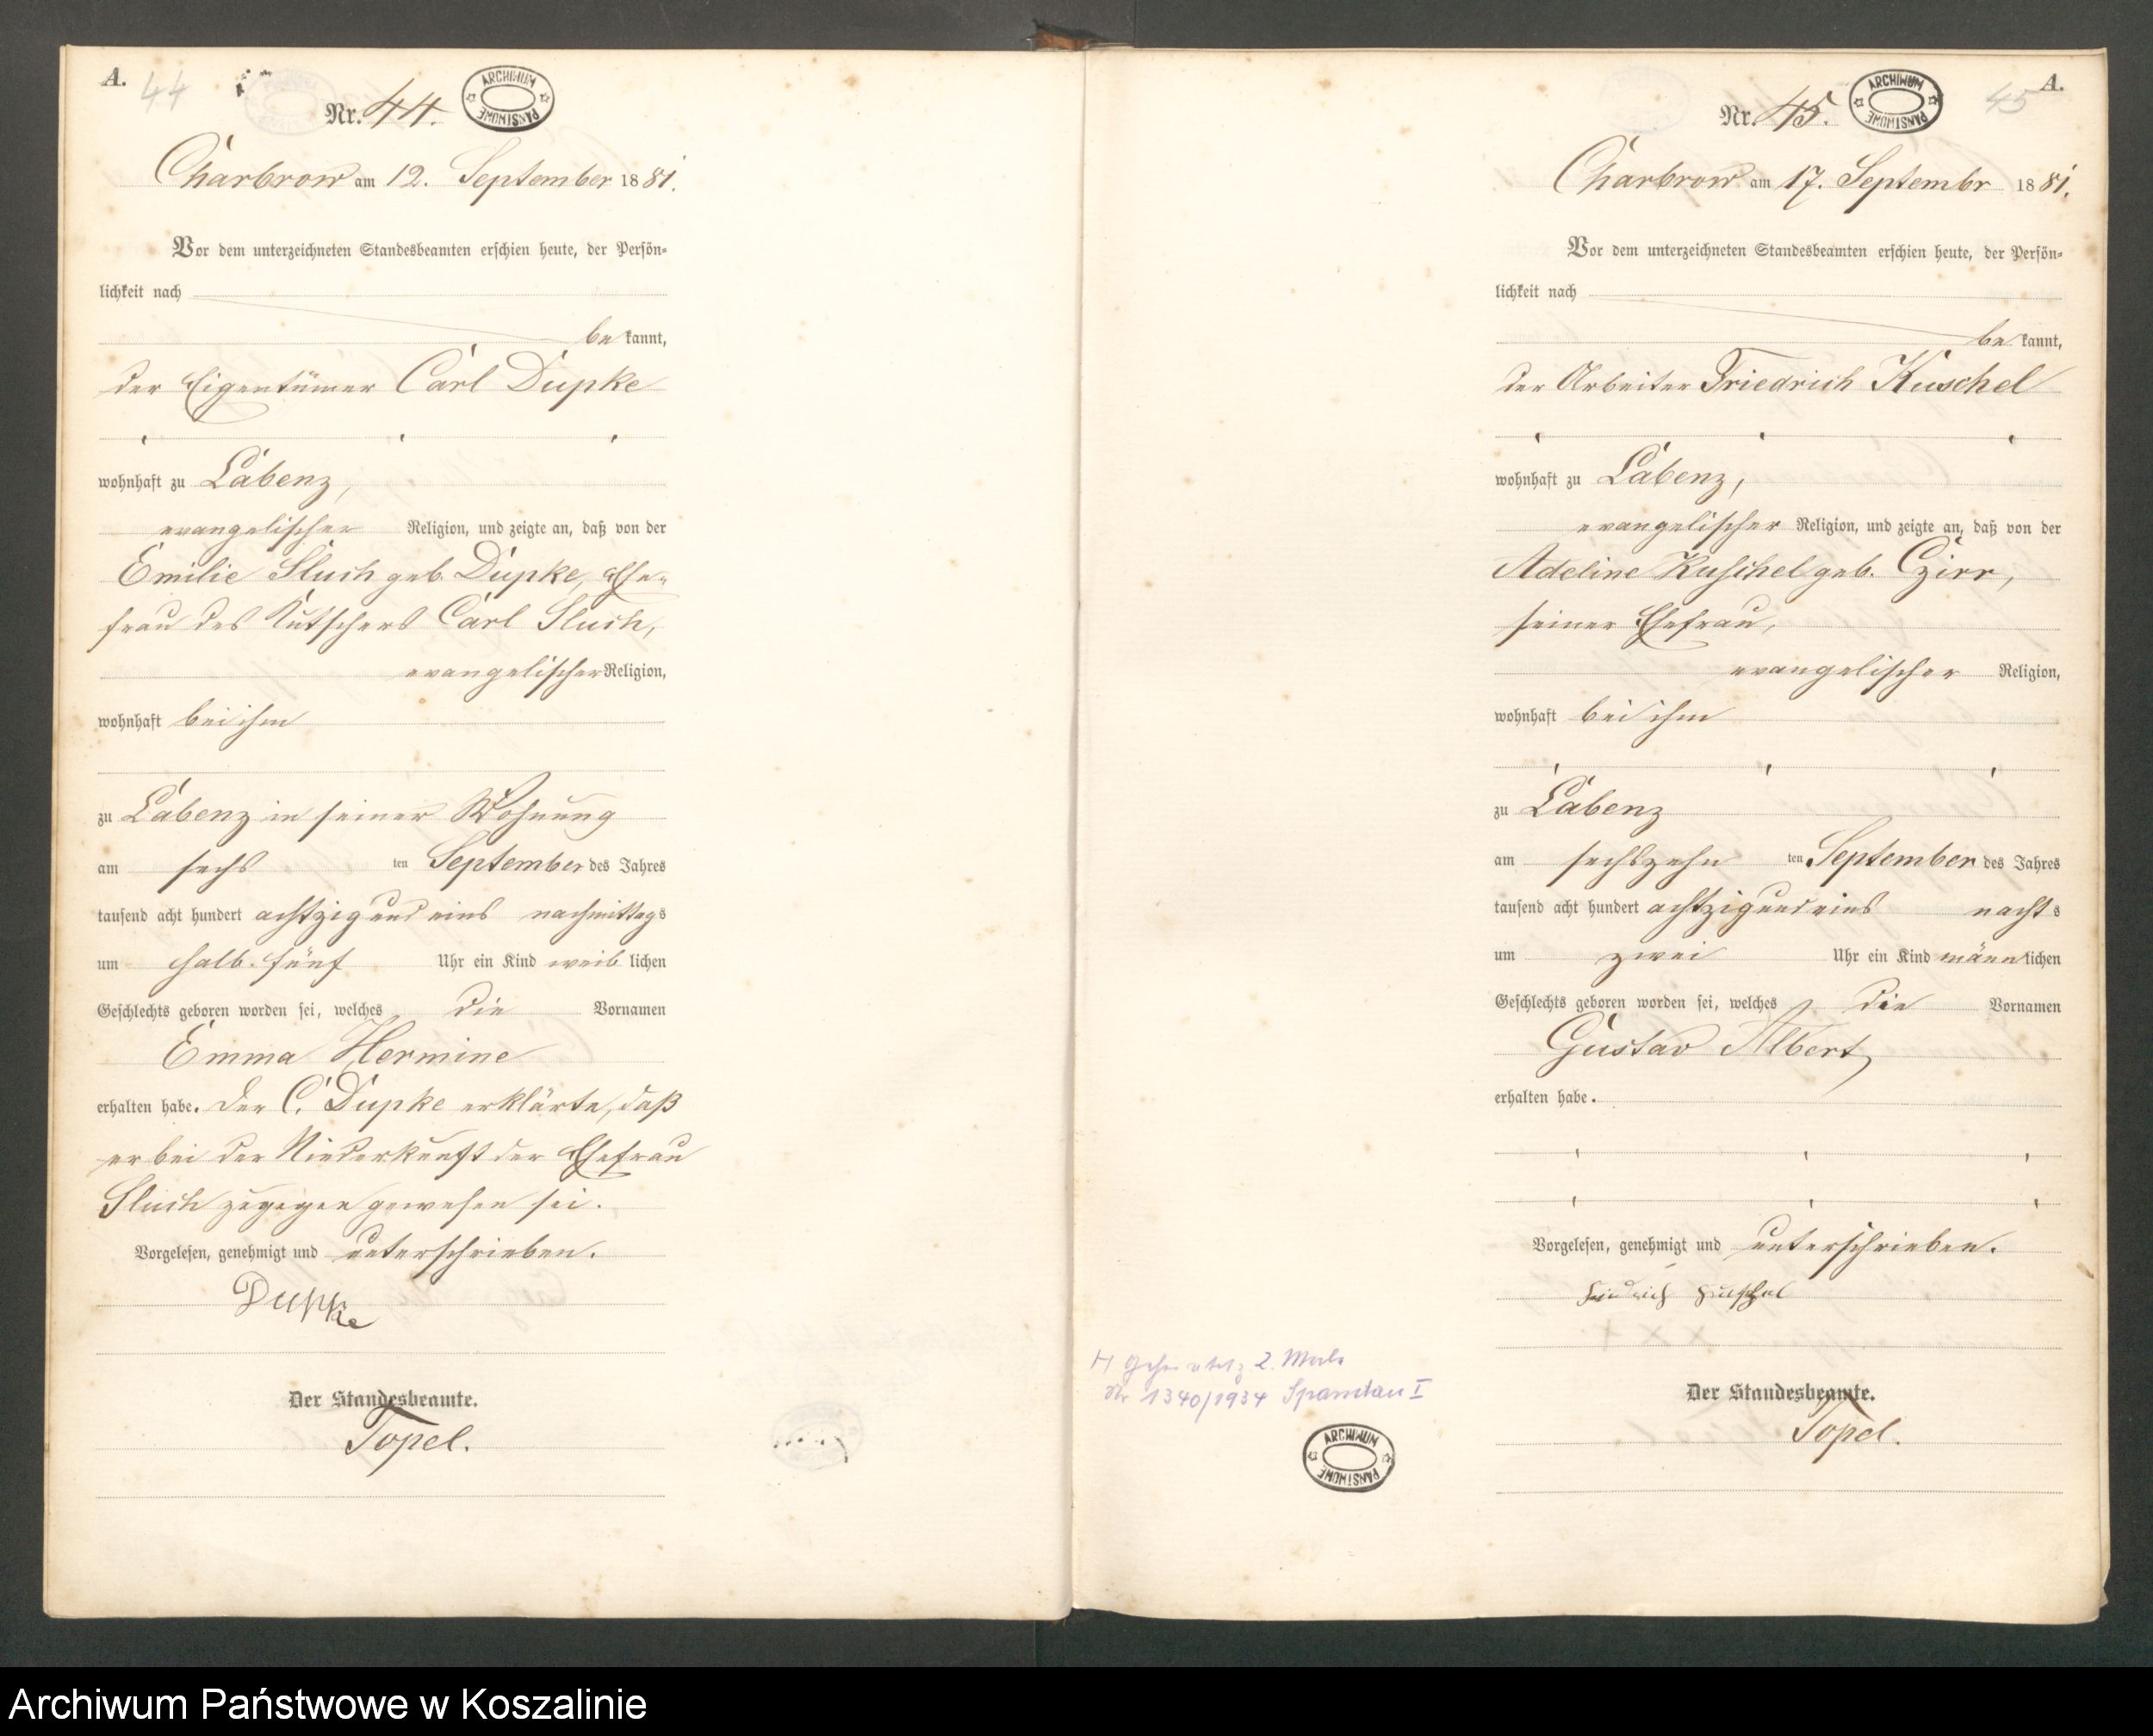 A. 44
Nr. 44.
ARCHIWUM PAŃSTWOWE
Charbrow am 12. September 1881.
Vor dem unterzeichneten Standesbeamten erschien heute, der Persön-
lichkeit nach
be kannt,
der Eigentümer Carl Dupke
wohnhaft zu Labenz,
evangelischer Religion, und zeigte an, daß von der
Emilie Sluch geb. Dupke, Ehe-
frau des Kutschers Carl Sluch,
evangelischer Religion,
wohnhaft bei ihm
zu Labenz in seiner Wohnung
am sechs ten September des Jahres
tausend acht hundert achtzig und eins nachmittags
um halb fünf Uhr ein Kind weib lichen
Geschlechts geboren worden sei, welches die Vornamen
Emma Hermine
erhalten habe. Der C. Dupke erklärte, daß
er bei der Niederkunft der Ehefrau
Sluch zugegen gewesen sei.
Vorgelesen, genehmigt und unterschrieben.
Dupke
Der Standesbeamte.
Topel.
A. 45
Nr. 45.
ARCHIWUM PAŃSTWOWE
Charbrow am 17. Septembr 1881.
Vor dem unterzeichneten Standesbeamten erschien heute, der Persön-
lichkeit nach
be kannt,
der Arbeiter Friedrich Kuschel
wohnhaft zu Labenz,
evangelischer Religion, und zeigte an, daß von der
Adeline Kuschel geb. Czirr,
seiner Ehefrau,
evangelischer Religion,
wohnhaft bei ihm
zu Labenz
am sechszehn ten September des Jahres
tausend acht hundert achtzig und eins nachts
um zwei Uhr ein Kind männ lichen
Geschlechts geboren worden sei, welches die Vornamen
Gustav Albert
erhalten habe.
Vorgelesen, genehmigt und unterschrieben.
Friedrich Kuschel
Der Standesbeamte.
Topel.
2. Male
Nr 1340/1934 Spandau I
ARCHIWUM PAŃSTWOWE
Archiwum Państwowe w Koszalinie